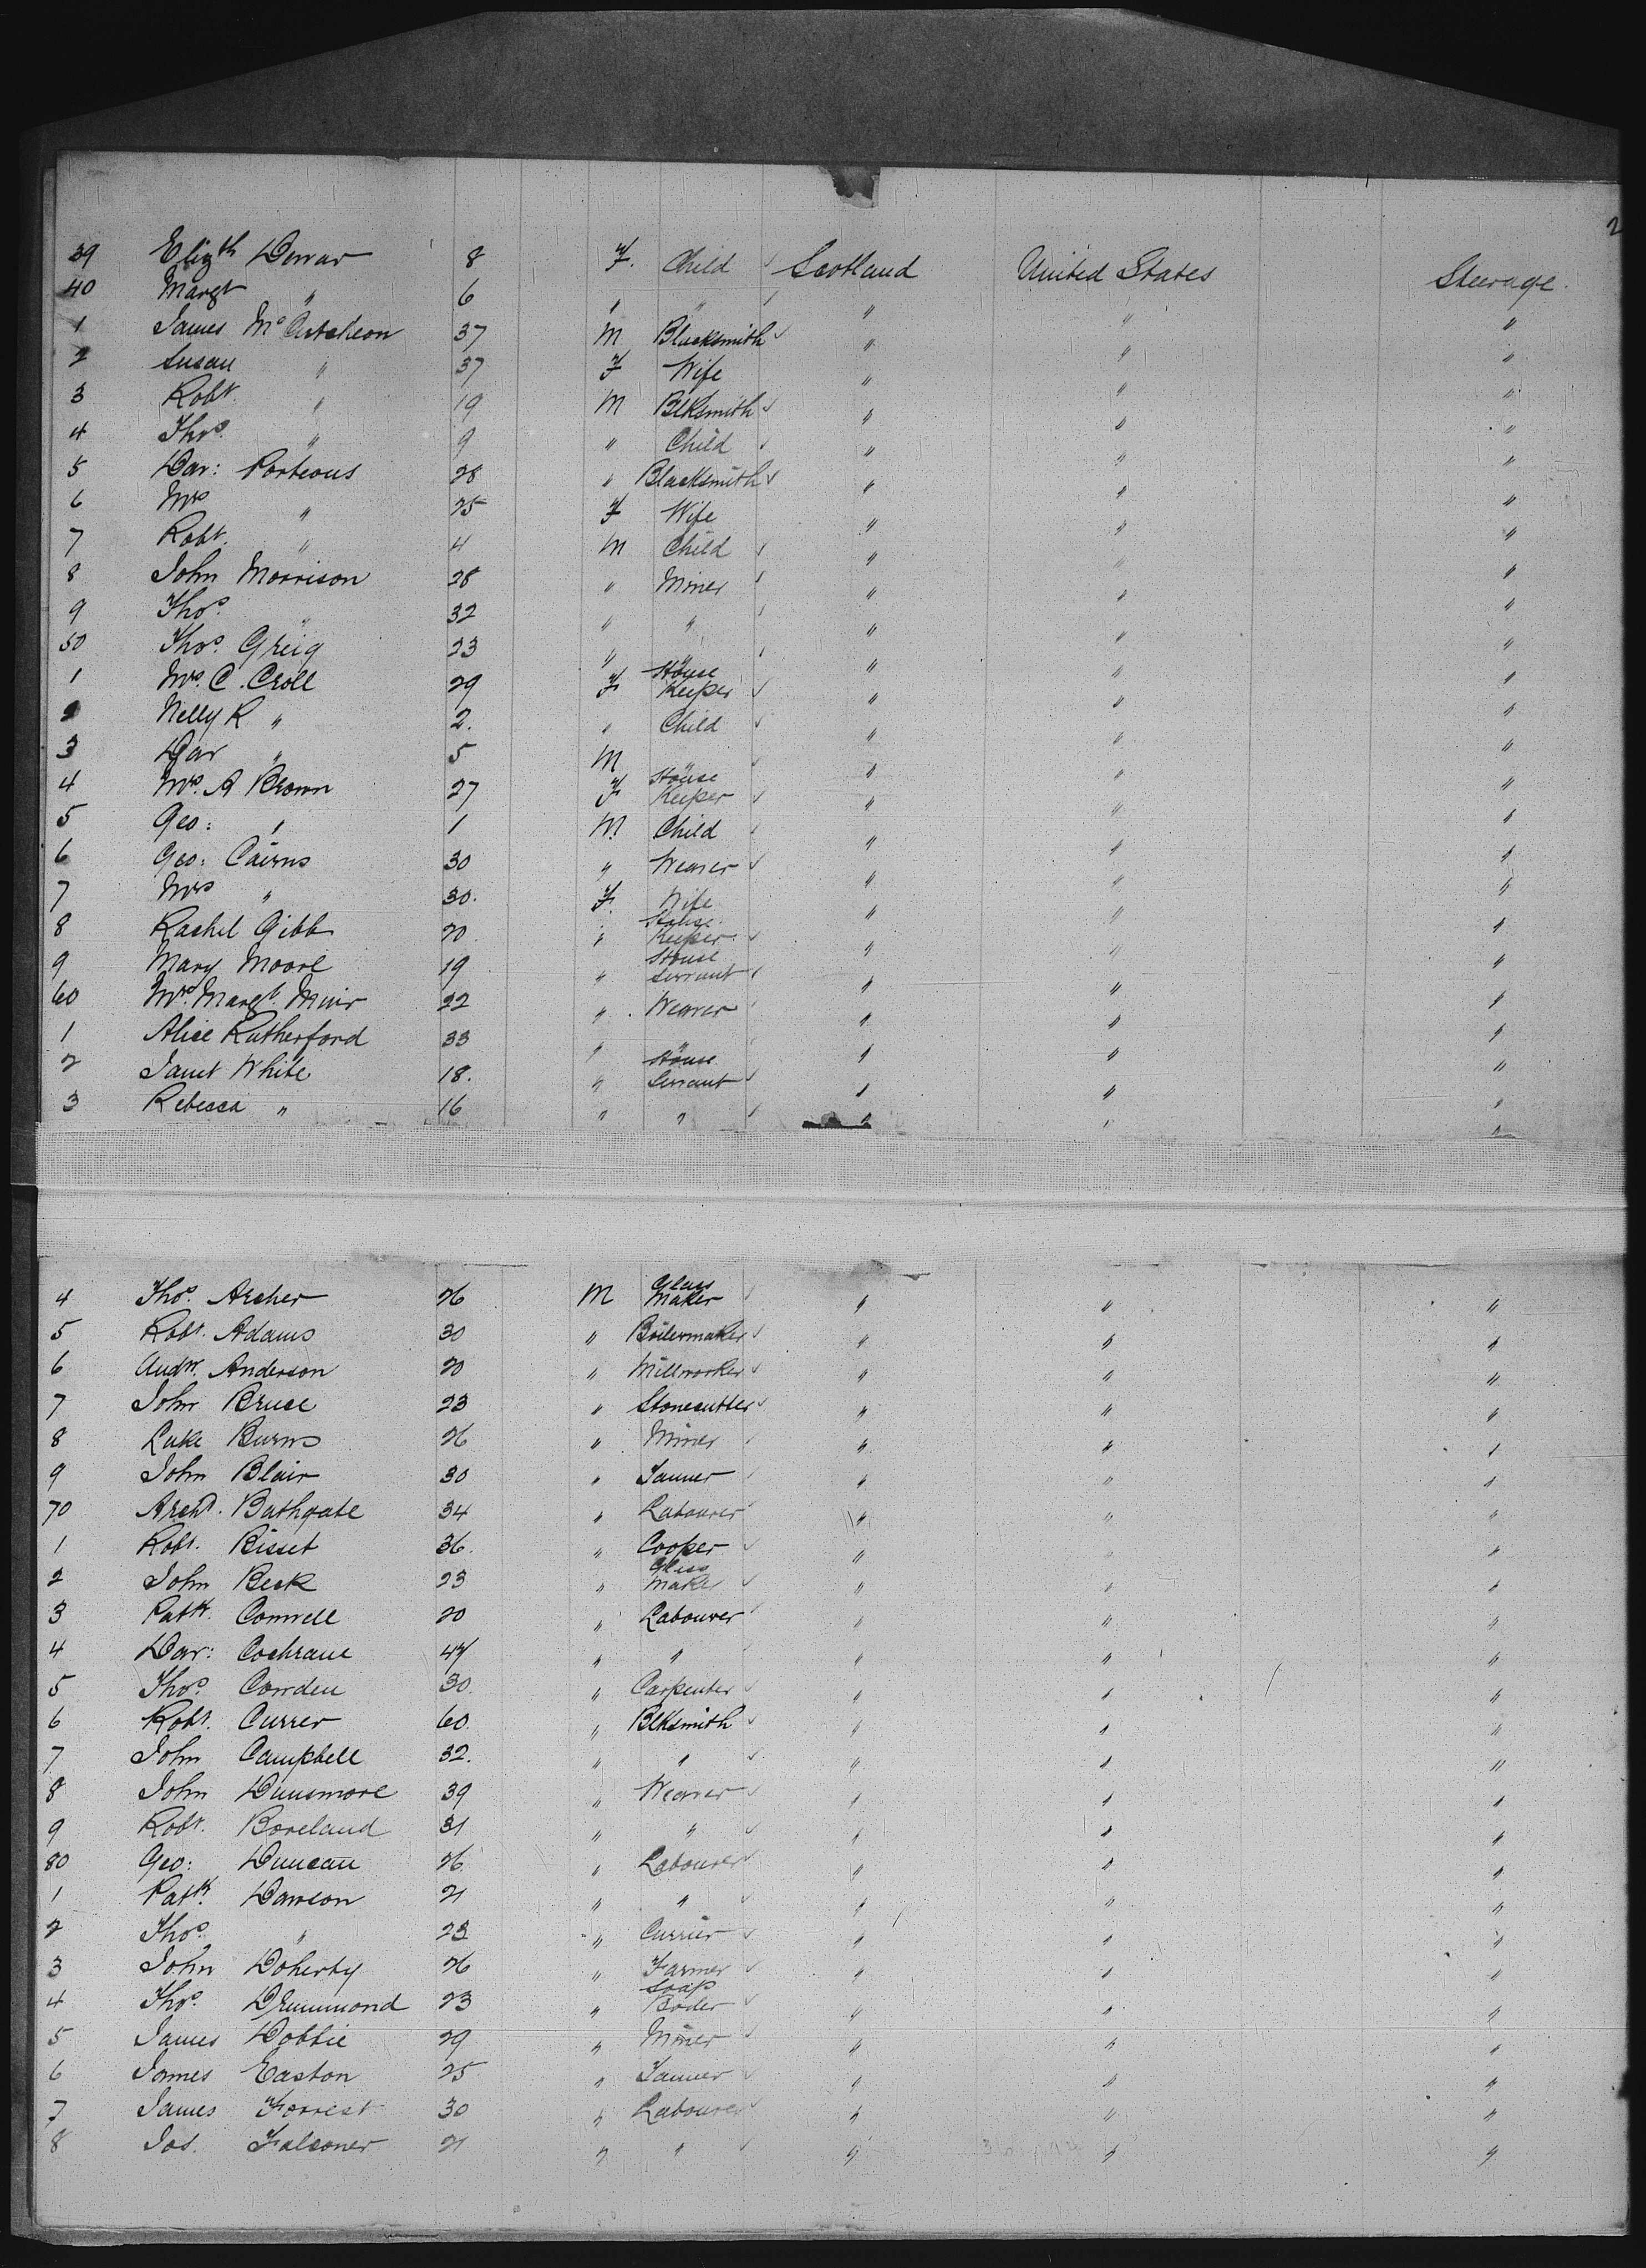 2
39 Elizth Dewar 8 F. Child Scotland United States Steerage.
40 Margt " 6 " " " " "
1 James McCutcheon 37 M Blacksmith " " "
2 Susan " 37 F Wife " " "
3 Robt. " 19 M Blksmith " " "
4 Thos. " 9 " Child " " "
5 Dav: Porteous 28 " Blacksmith " " "
6 Mrs " 25 F Wife " " "
7 Robt. " 4 M Child " " "
8 John Morrison 28 " Miner " " "
9 Thos. " 32 " " " " "
50 Thos. Greig 23 " " " " "
1 Mrs. C. Croll 29 F House Keeper " " "
2 Nelly R " 2. " Child " " "
3 Dav " 5 M " " " "
4 Mrs. A Brown 27 F House Keeper " " "
5 Geo: " 1 M. Child " " "
6 Geo: Cairns 30 " Weaver " " "
7 Mrs " 30. F. Wife " " "
8 Rachel Gibb 20 " House Keeper " " "
9 Mary Moore 19 " House Servant " " "
60 Mrs. Margt. Muir 22 " Weaver " " "
1 Alice Rutherford 33 " " " " "
2 Janet White 18. " House Servant " " "
3 Rebecca " 16 " " " " "
4 Thos. Archer 26 M Glass Maker " " "
5 Robt. Adams 30 " Boilermaker " " "
6 Andw. Anderson 20 " Millworker " " "
7 John Bruce 23 " Stonecutter " " "
8 Luke Burns 26 " Miner " " "
9 John Blair 30 " Tanner " " "
70 Archd. Bathgate 34 " Labourer " " "
1 Robt. Bisset 36. " Cooper " " "
2 John Beck 23 " Glass Maker " " "
3 Patk. Conwell 20 " Labourer " " "
4 Dav: Cochrane 47 " " " " "
5 Thos. Cowden 30. " Carpenter " " "
6 Robt. Currer 60. " Blksmith " " "
7 John Campbell 32. " " " " "
8 John Dunsmore 39 " Weaver " " "
9 Robt. Boreland 31 " " " " "
80 Geo: Duncan 26 " Labourer " " "
1 Patk. Dawson 21 " " " " "
2 Thos. " 23 " Currier " " "
3 John Doherty 26 " Farmer " " "
4 Thos. Drummond 23 " Soap Boiler " " "
5 James Dobbie 29 " Miner " " "
6 James Easton 25 " Tanner " " "
7 James Forrest 30 " Labourer " " "
8 Jas. Falconer 21 " " " " "